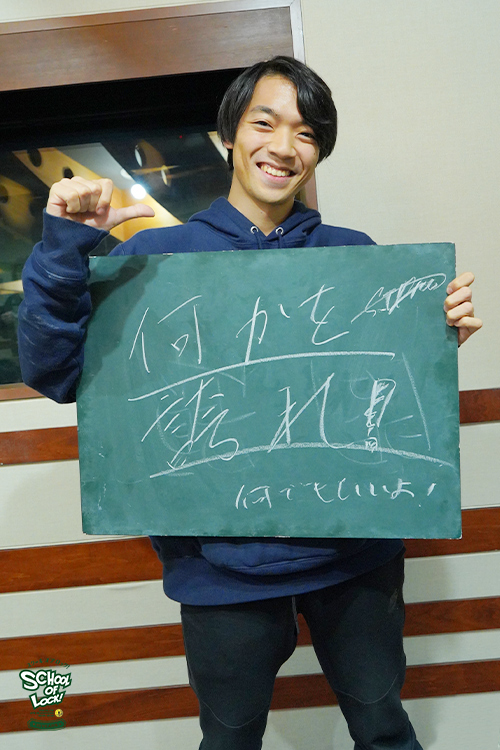 何かを
誇れ!
何でもいいよ!
SCHOOL
OF
LOCK!